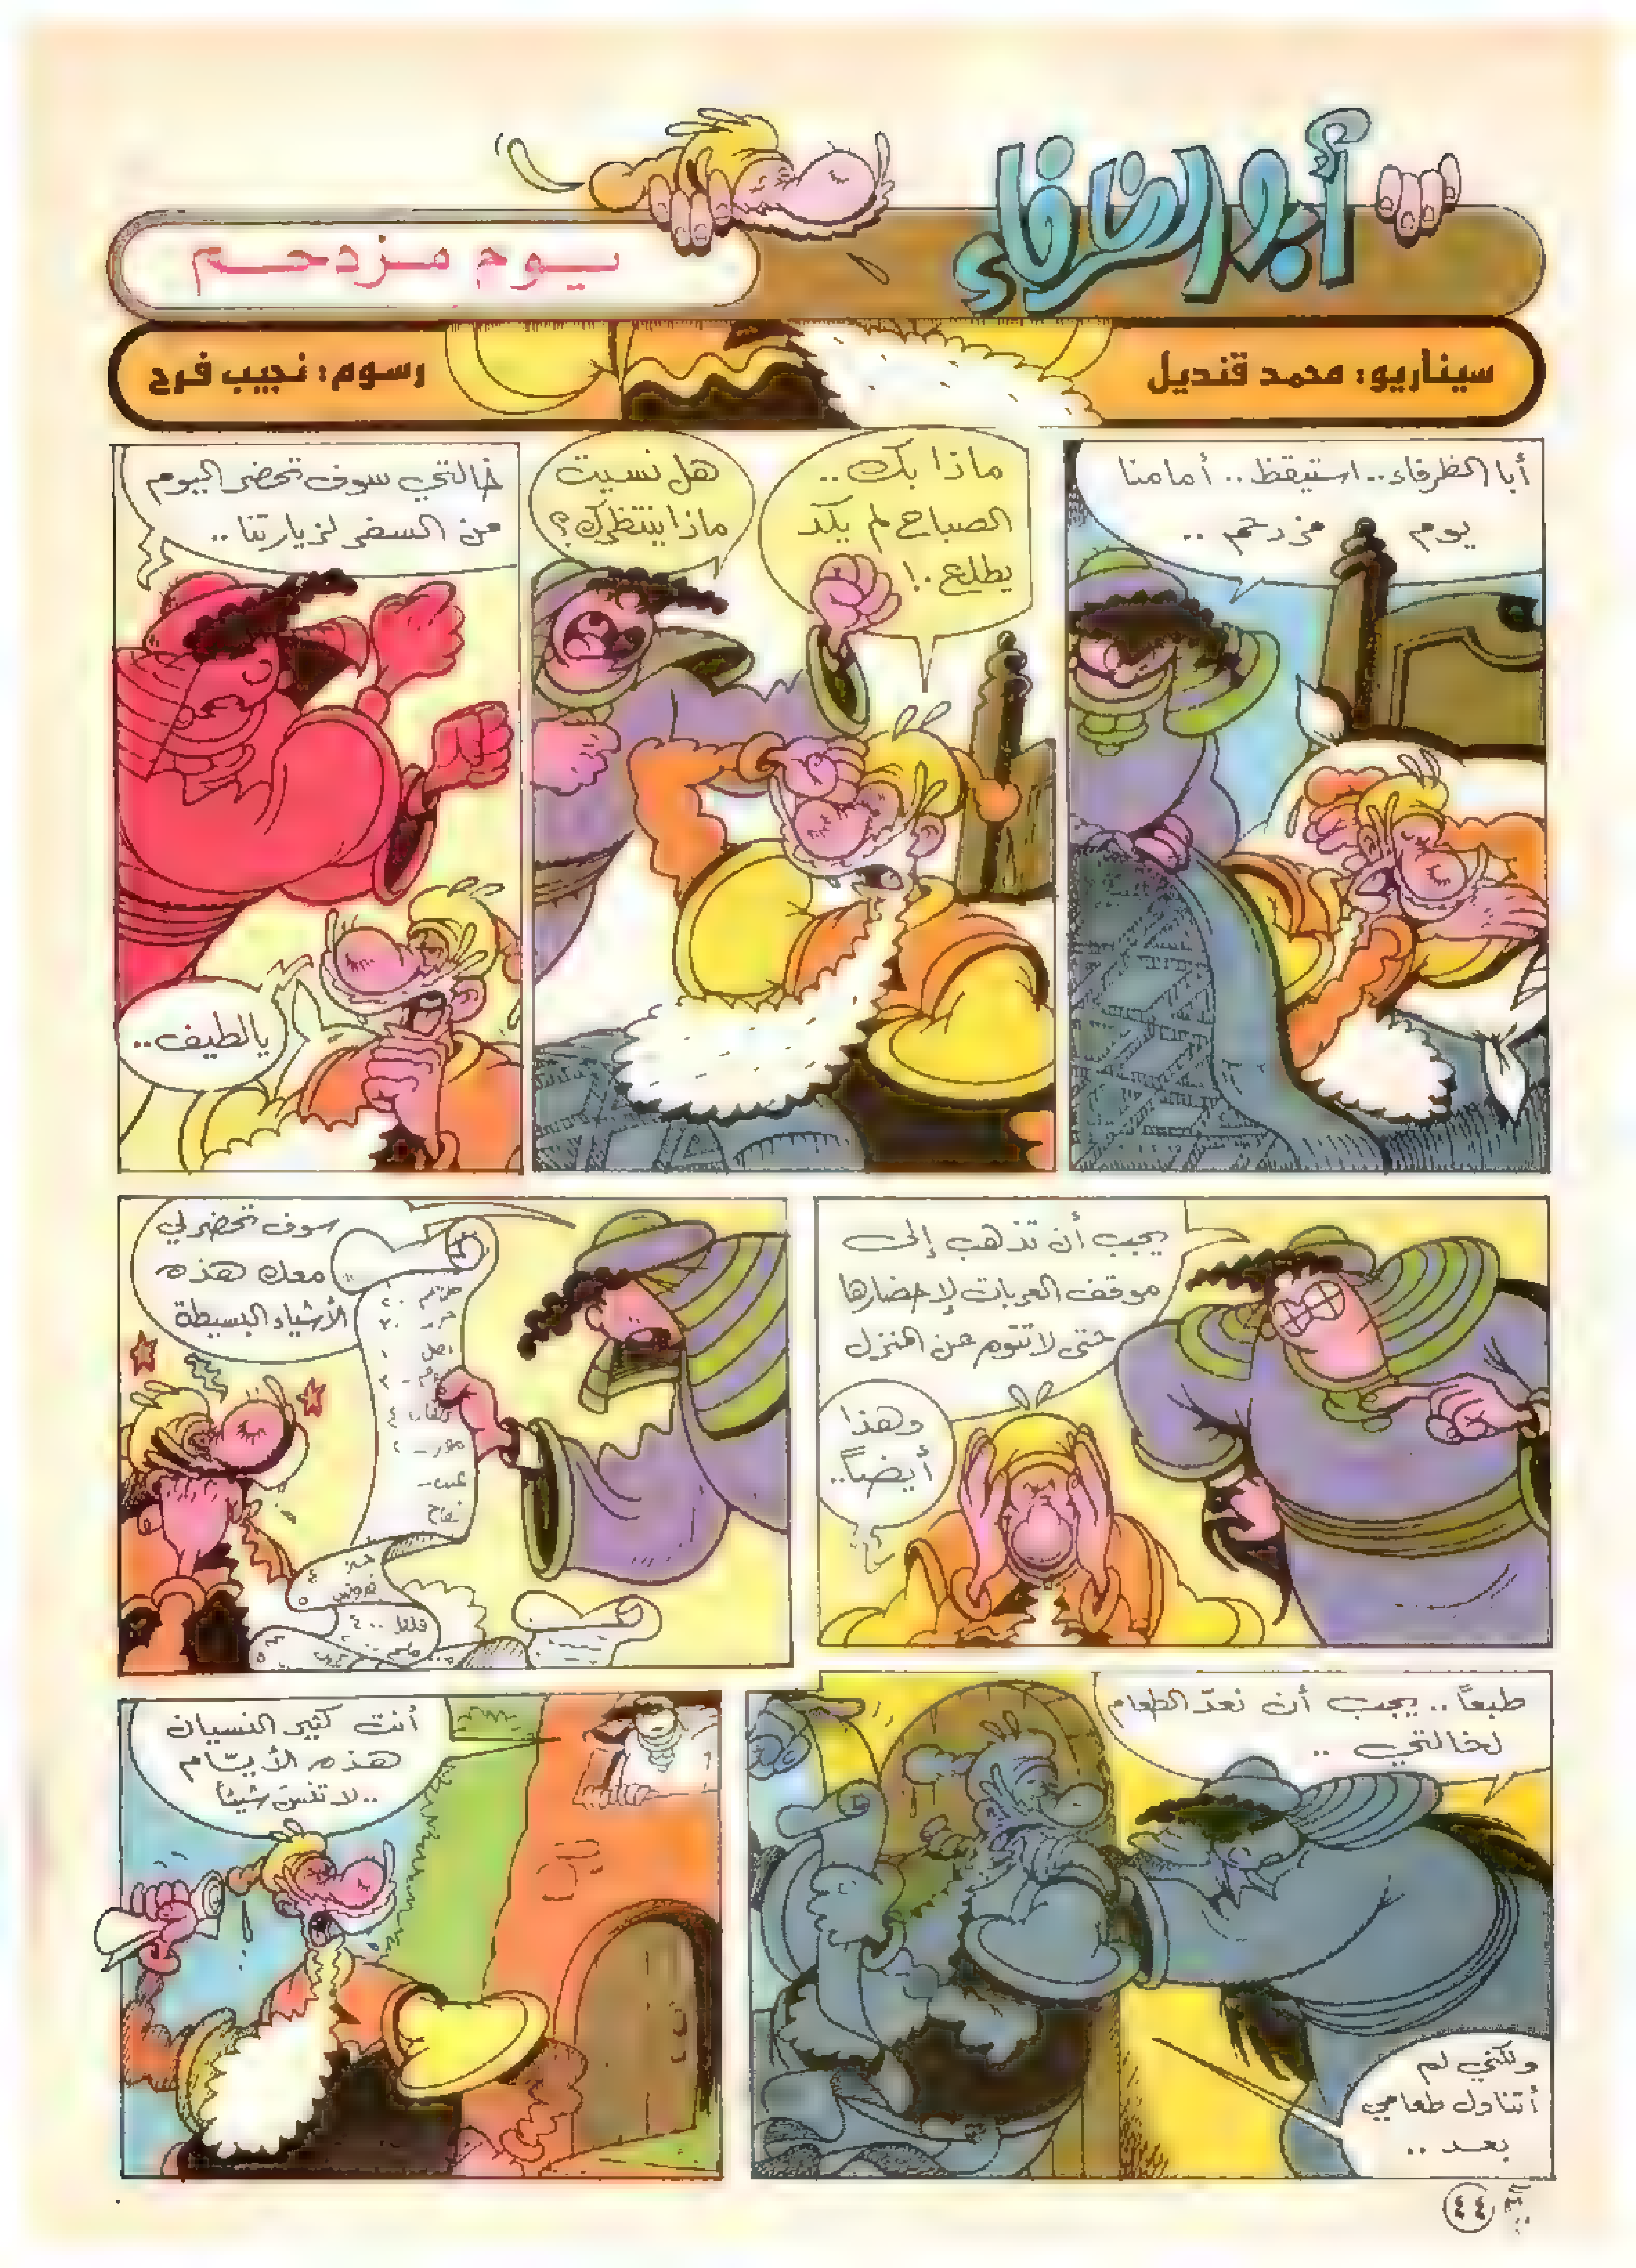 أبو الظرفاء
يوم مزدحم
سيناريو: محمد قنديل
رسوم: نجيب فرح
أبا الظرفاء.. استيقظ.. أمامنا
يوم مزدحم ..
ماذا بك ..
الصباح لم يكد
يطلع .!
هل نسيت
ماذا ينتظرك؟
خالتي سوف تحضر اليوم
من السفر لزيارتنا ..
يا لطيف ..
يجب أن تذهب إلى
موقف العربات لإحضارها
حتى لا تتوه عن المنزل
وهذا
أيضاً ..
سوف تحضر لي
معك هذه
الأشياء البسيطة
بصل ١
عنب -
تفاح
خبز ٤
فلفل ٤٠٠
طبعاً .. يجب أن نعدّ الطعام
لخالتي ..
ولكني لم
أتناول طعامي
بعد ..
أنت كثير النسيان
هذه الأيّام
.. لا تنسَ شيئاً
٤٤